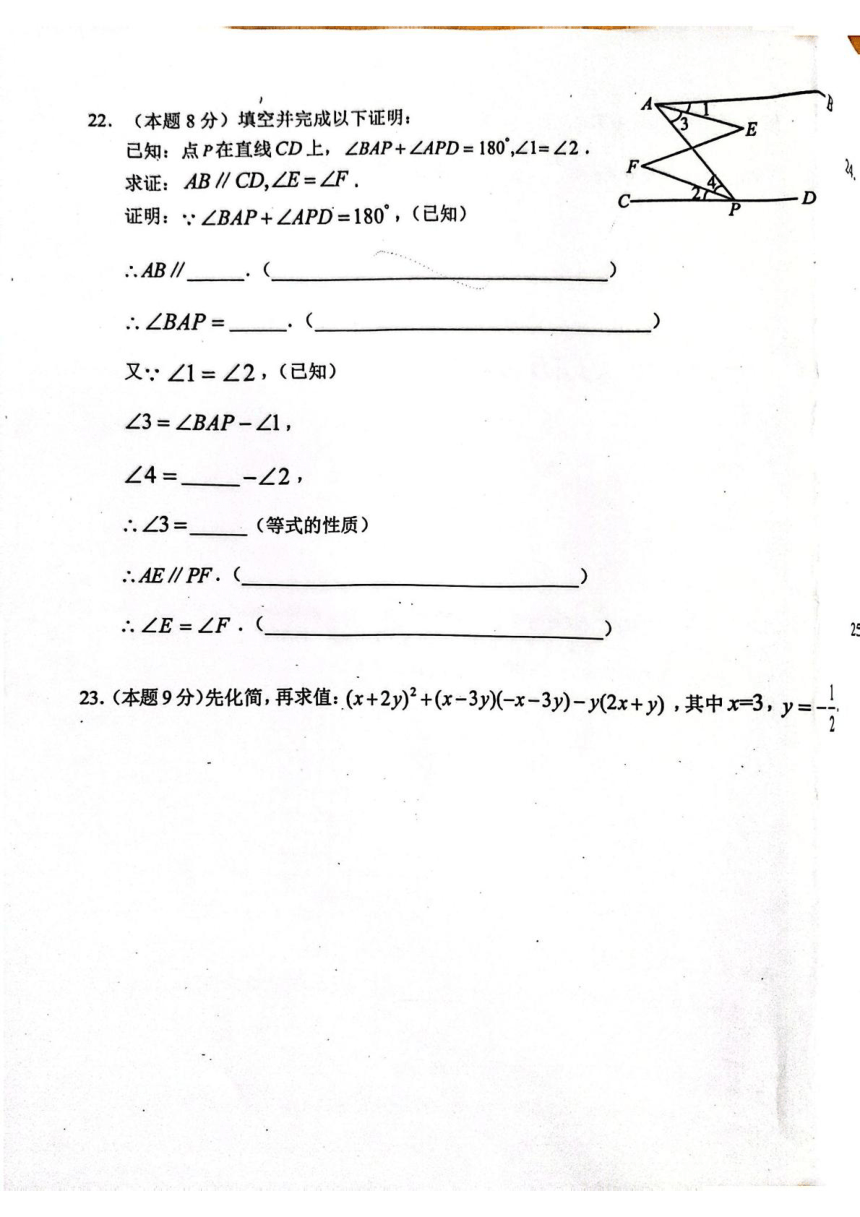 22. （本题 8 分）填空并完成以下证明：
已知：点P在直线CD上，∠BAP+∠APD=180°,∠1=∠2．
求证：AB∥CD,∠E=∠F．
证明：∵∠BAP+∠APD=180°，（已知）
∴AB∥_____．（_____）
∴∠BAP=_____．（_____）
又∵∠1=∠2，（已知）
∠3=∠BAP－∠1，
∠4=_____－∠2，
∴∠3=_____（等式的性质）
∴AE∥PF．（_____）
∴∠E=∠F．（_____）
A 1 B
3 E
F 4
C 2 P D
23.（本题9分)先化简，再求值：(x+2y)²+(x−3y)(−x−3y)−y(2x+y)，其中x=3，y=−1/2.
24.
25